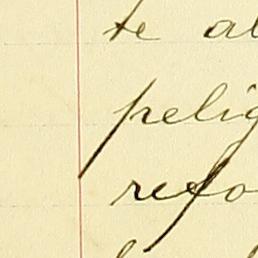 te al
pelig
refo